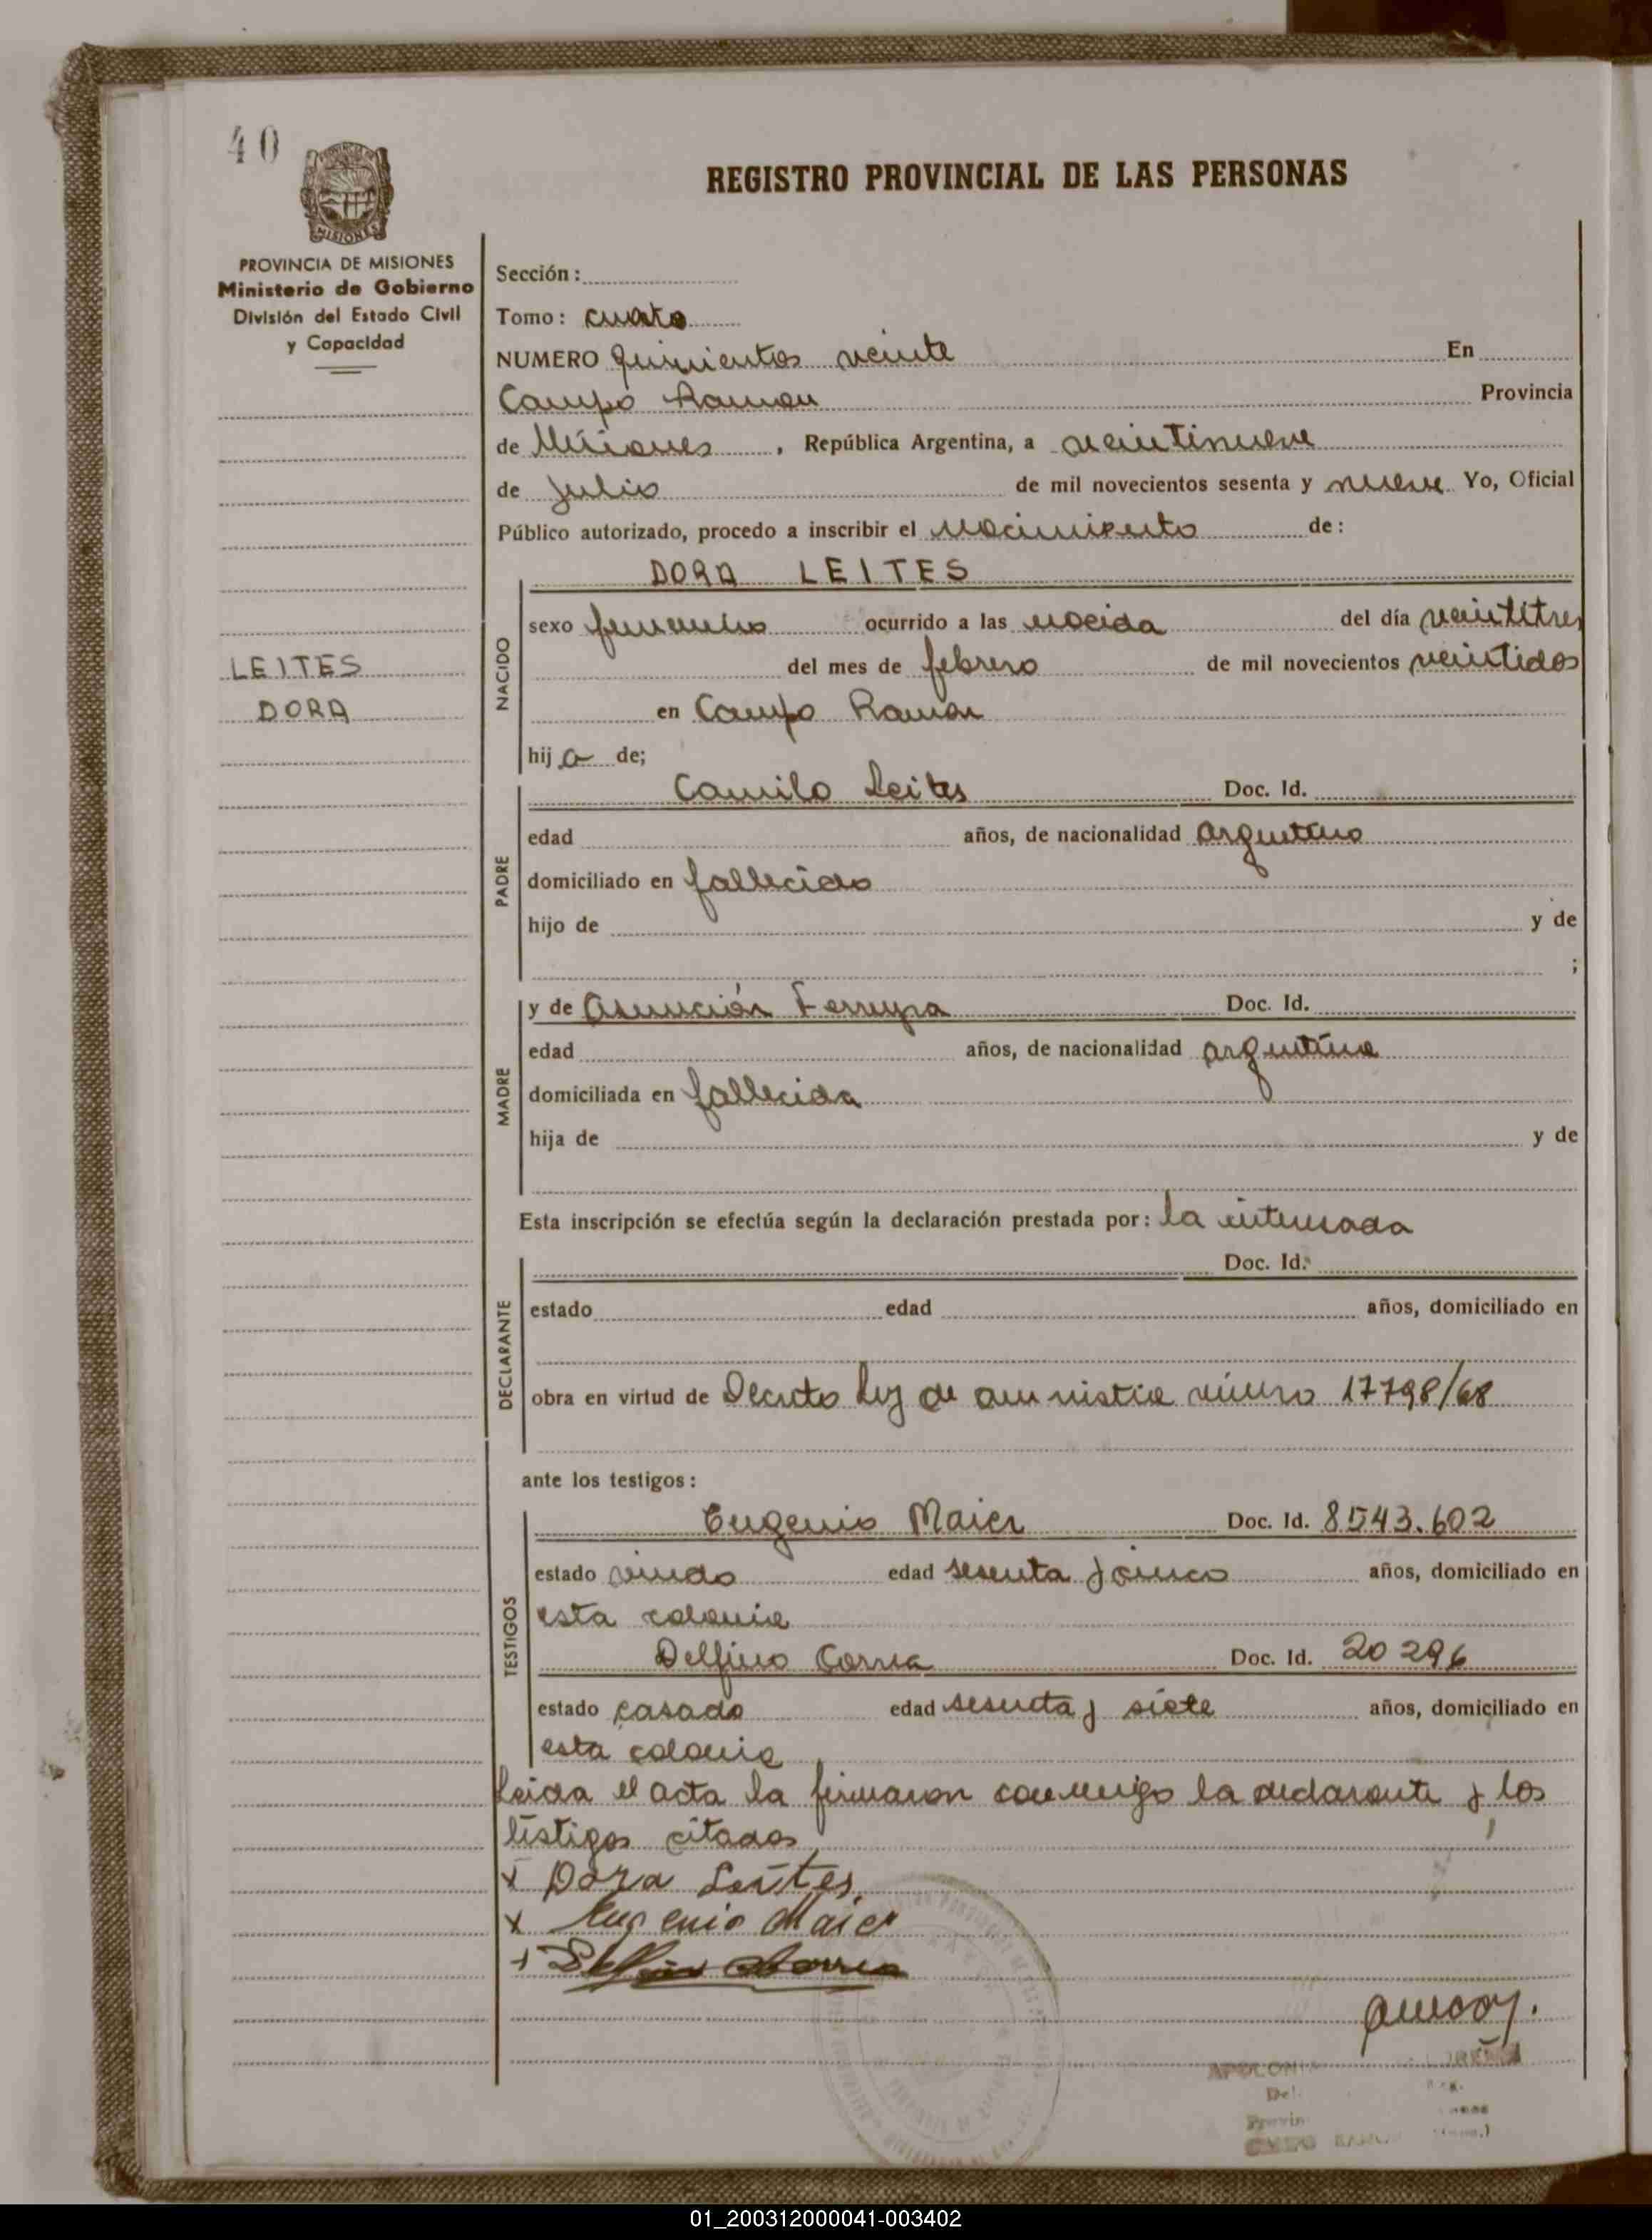 40
REGISTRO PROVINCIAL DE LAS PERSONAS
PROVINCIA DE MISIONES
Ministerio de Gobierno
División del Estado Civil
y Capacidad
Sección:
Tomo: cuarto
NUMERO quinientos veinte En
Campo Ramon Provincia
de Misiones, República Argentina, a veintinueve
de Julio de mil novecientos sesenta y nueve Yo, Oficial
Público autorizado, procedo a inscribir el nacimiento de:
DORA LEITES
LEITES
DORA
NACIDO
sexo femenino ocurrido a las nacida del día veintitres
del mes de febrero de mil novecientos veintidos
en Campo Ramon
hija de;
PADRE
Camilo Leites Doc. Id.
edad años, de nacionalidad argentino
domiciliado en fallecido
hijo de y de
;
MADRE
y de Asunción Ferreyra Doc. Id.
edad años, de nacionalidad argentina
domiciliada en fallecida
hija de y de
Esta inscripción se efectúa según la declaración prestada por: la interesada
DECLARANTE
Doc. Id.
estado edad años, domiciliado en
obra en virtud de Decreto Ley de amnistia número 17798/68
ante los testigos:
TESTIGOS
Eugenio Maier Doc. Id. 8543.602
estado viudo edad sesenta y cinco años, domiciliado en
esta colonia
Delfino Correa Doc. Id. 20296
estado casado edad sesenta y siete años, domiciliado en
esta colonia
Leida el acta la firmaron conmigo la declarante y los
testigos citados
x Dora Leites
x Eugenio Maier
+ Delfino Correa
01_200312000041-003402